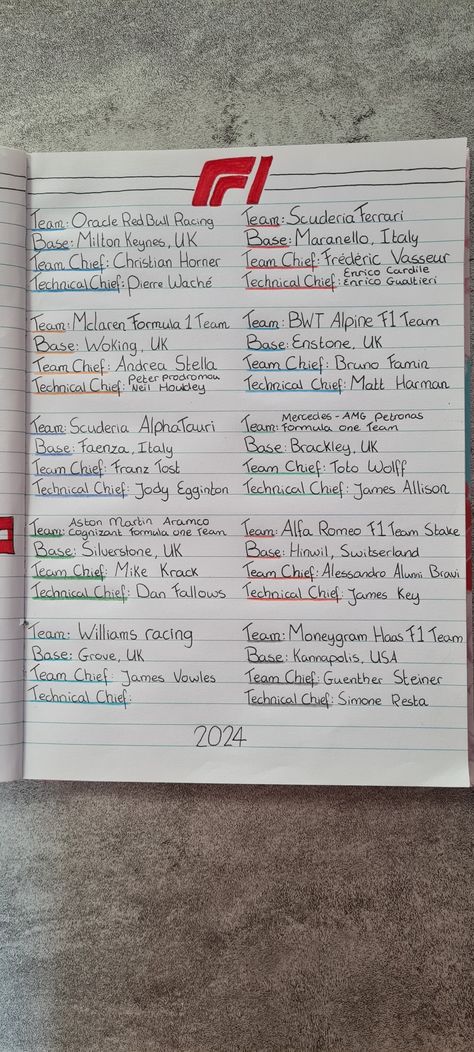 F1
Team: Oracle Red Bull Racing
Base: Milton Keynes, UK
Team Chief: Christian Horner
Technical Chief: Pierre Waché
Team: Scuderia Ferrari
Base: Maranello, Italy
Team Chief: Frédéric Vasseur
Technical Chief: Enrico Cardile
Enrico Gualtieri
Team: Mclaren Formula 1 Team
Base: Woking, UK
Team Chief: Andrea Stella
Technical Chief: Peter Prodromou
Neil Houldey
Team: BWT Alpine F1 Team
Base: Enstone, UK
Team Chief: Bruno Famin
Technical Chief: Matt Harman
Team: Scuderia AlphaTauri
Base: Faenza, Italy
Team Chief: Franz Tost
Technical Chief: Jody Egginton
Team: Mercedes-AMG Petronas
Formula One Team
Base: Brackley, UK
Team Chief: Toto Wolff
Technical Chief: James Allison
Team: Aston Martin Aramco
Cognizant Formula One Team
Base: Silverstone, UK
Team Chief: Mike Krack
Technical Chief: Dan Fallows
Team: Alfa Romeo F1 Team Stake
Base: Hinwil, Switserland
Team Chief: Alessandro Alumi Bravi
Technical Chief: James Key
Team: Williams racing
Base: Grove, UK
Team Chief: James Vowles
Technical Chief:
Team: Moneygram Haas F1 Team
Base: Kannapolis, USA
Team Chief: Guenther Steiner
Technical Chief: Simone Resta
2024